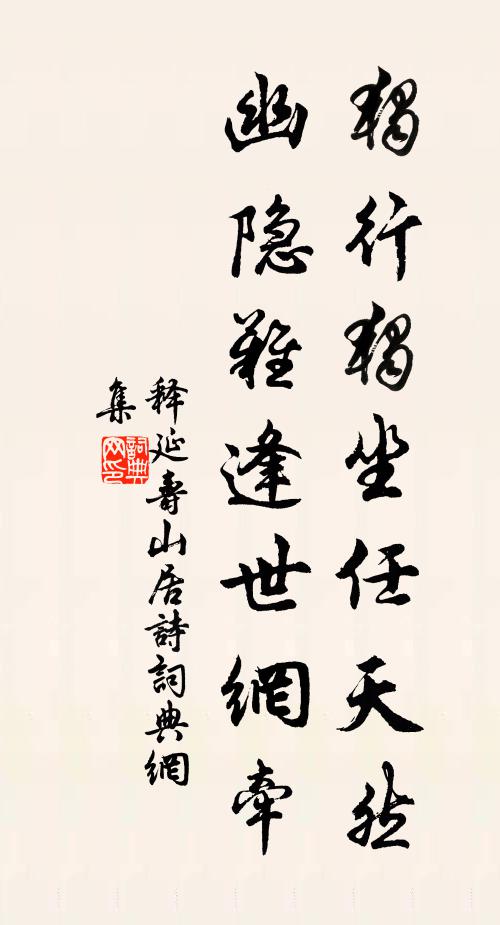 獨行獨坐任天然
幽隐難逢世網牽
释延壽山居詩詞典網
集
詞典
网印